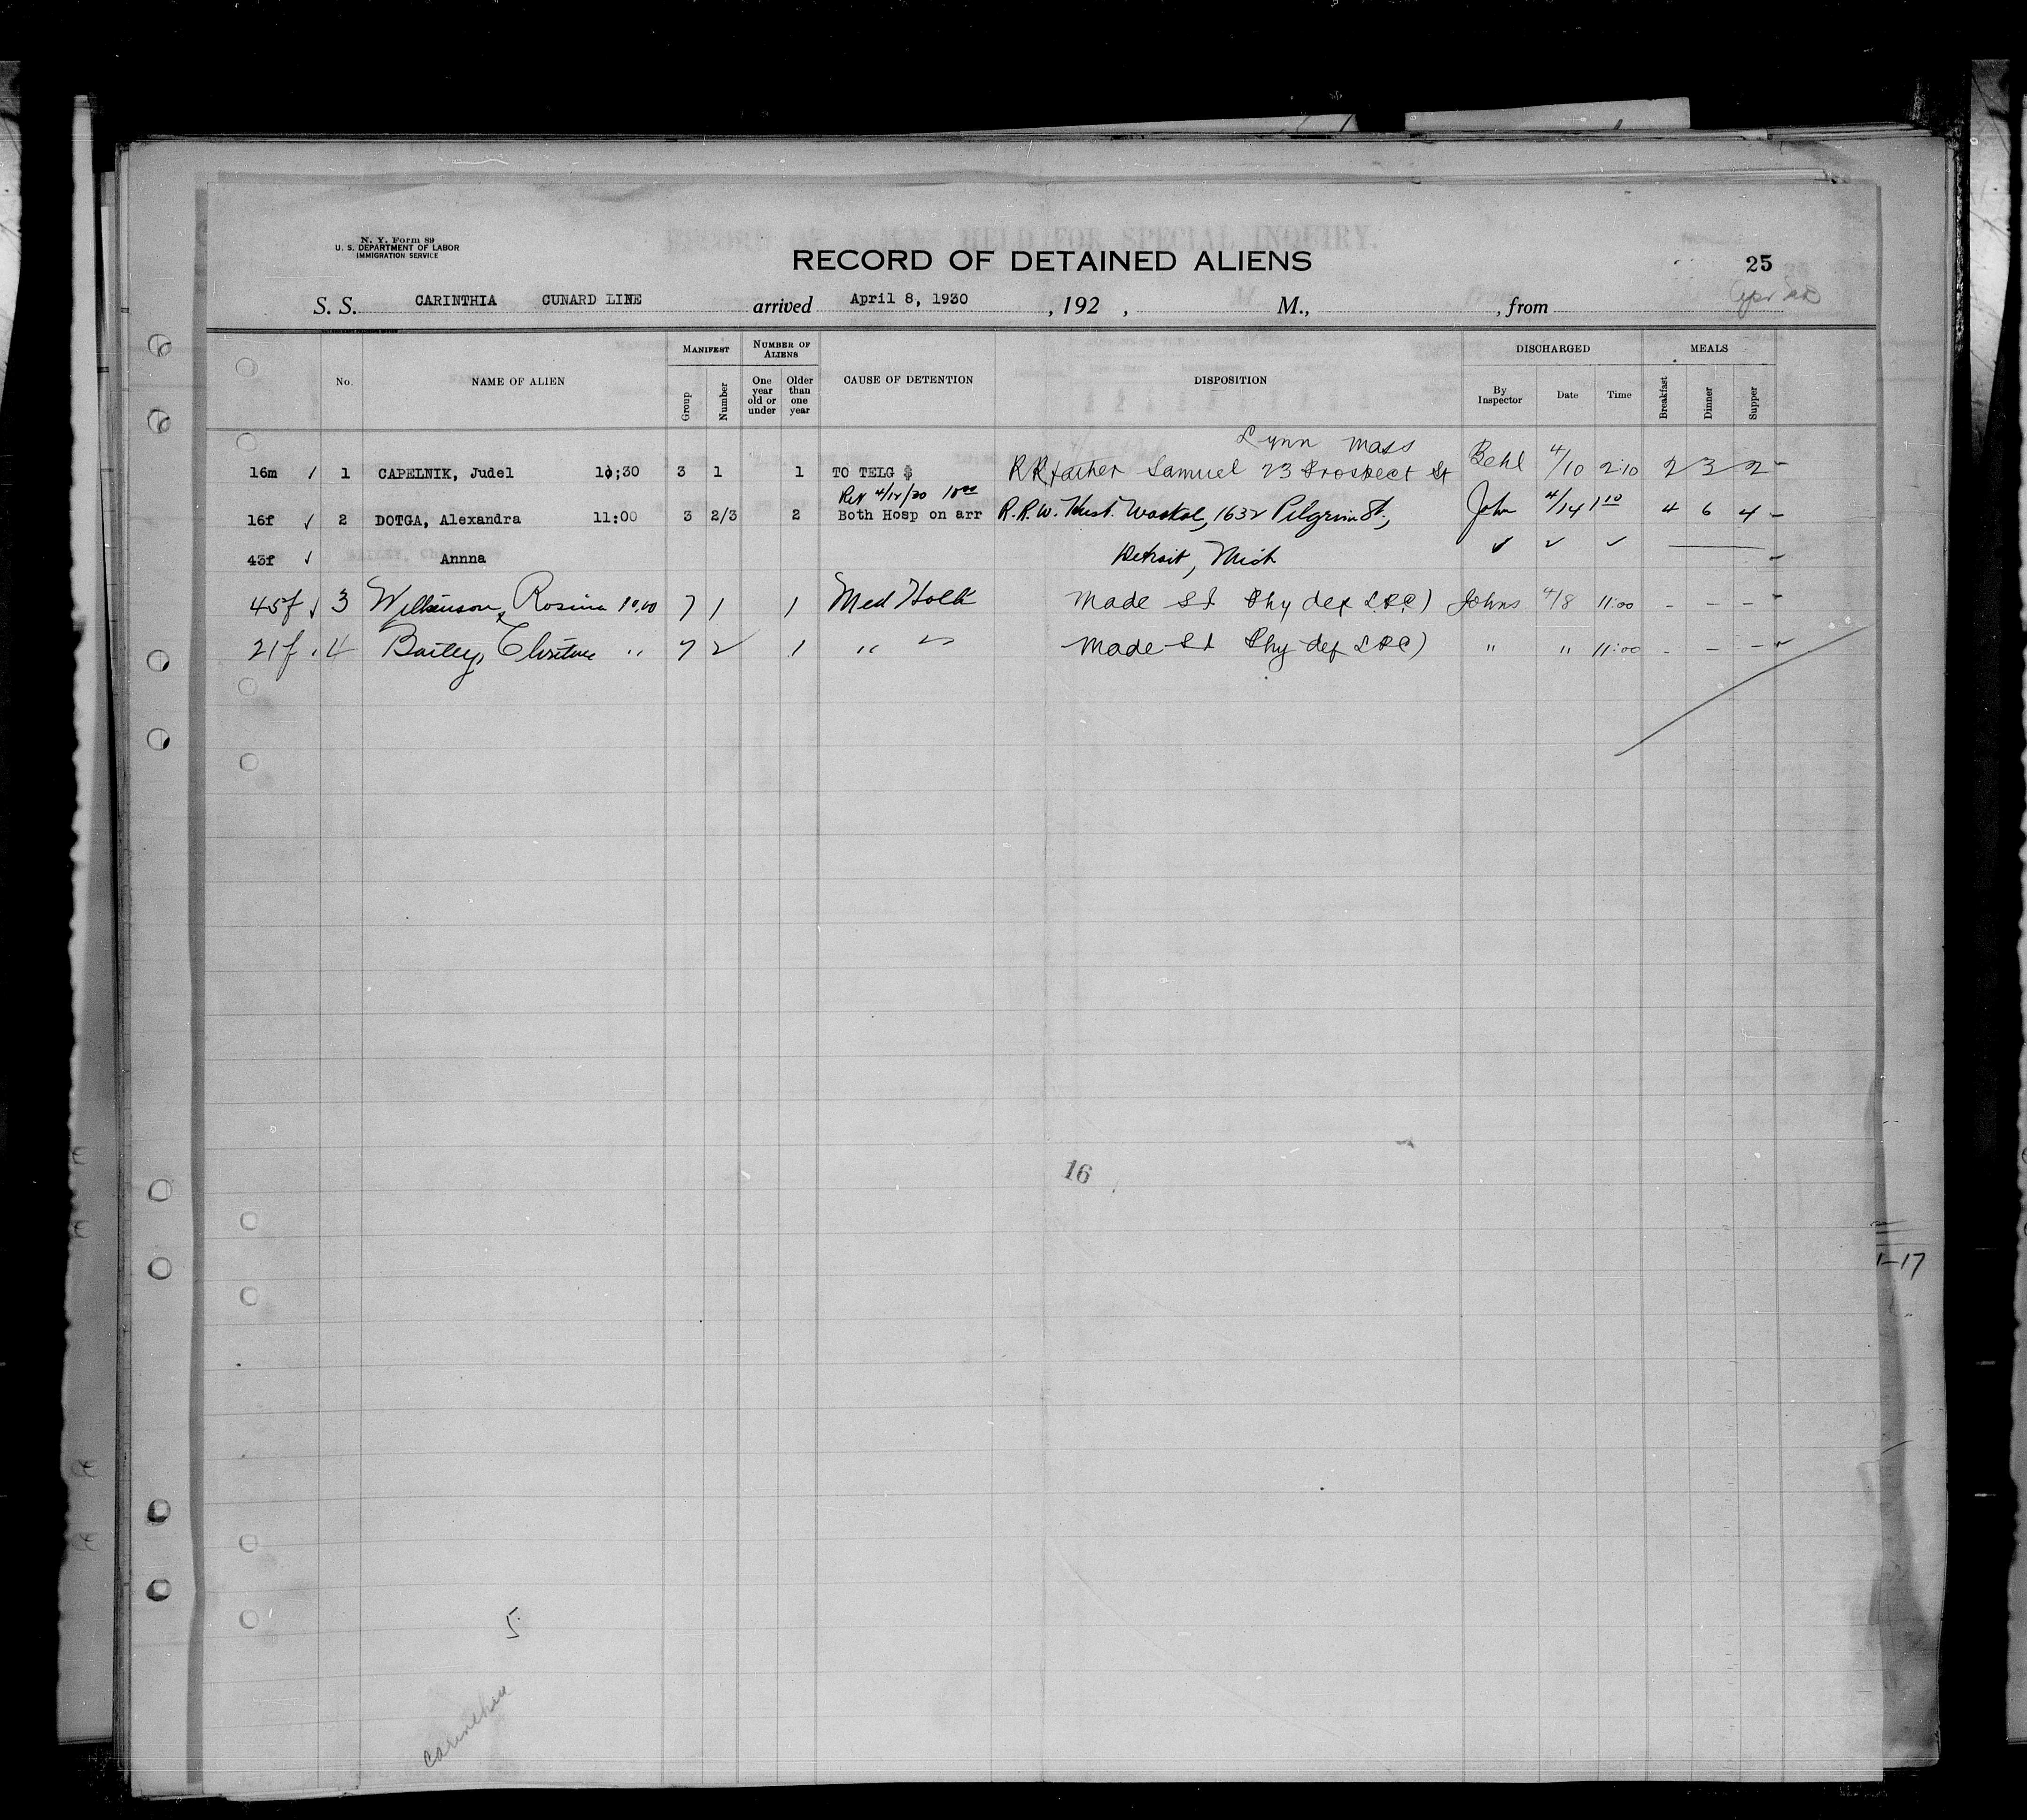 N. Y. Form 89
U. S. DEPARTMENT OF LABOR
IMMIGRATION SERVICE
RECORD OF ALIENS HELD FOR SPECIAL INQUIRY.
RECORD OF DETAINED ALIENS
25
S. S. CARINTHIA CUNARD LINE arrived April 8, 1930, 192 , M., , from
No. NAME OF ALIEN MANIFEST Group Number NUMBER OF ALIENS One year old or under Older than one year CAUSE OF DETENTION DISPOSITION DISCHARGED By Inspector Date Time MEALS Breakfast Dinner Supper
Lynn Mass
16m / 1 CAPELNIK, Judel 10;30 3 1 1 TO TELG $ RR father Samuel 23 Prospect St Behl 4/10 2:10 2 3 2 -
Rev 4/12/30 10 00
16f ✓ 2 DOTGA, Alexandra 11:00 3 2/3 2 Both Hosp on arr R.R.W. Hust. Waskal, 1632 Pilgrim St., John 4/14 1 10 4 6 4 -
43f ✓ Annna Detroit, Mich ✓ ✓ ✓ -
45f ✓ 3 Wilkinson, Rosina 10.00 7 1 1 Med Hold Made SI Phy def LPC) Johns 4/8 11:00 - - - -
21f . 4 Bailey, " 7 2 1 " " Made SI Phy def LPC) " " 11:00 - - - -
16
1-17
5
Carinthia